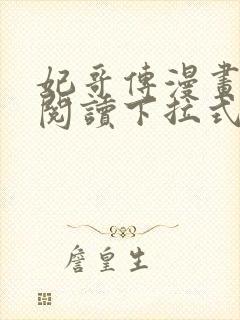 妃哥傳漫畫
閱讀下拉式
詹皇生